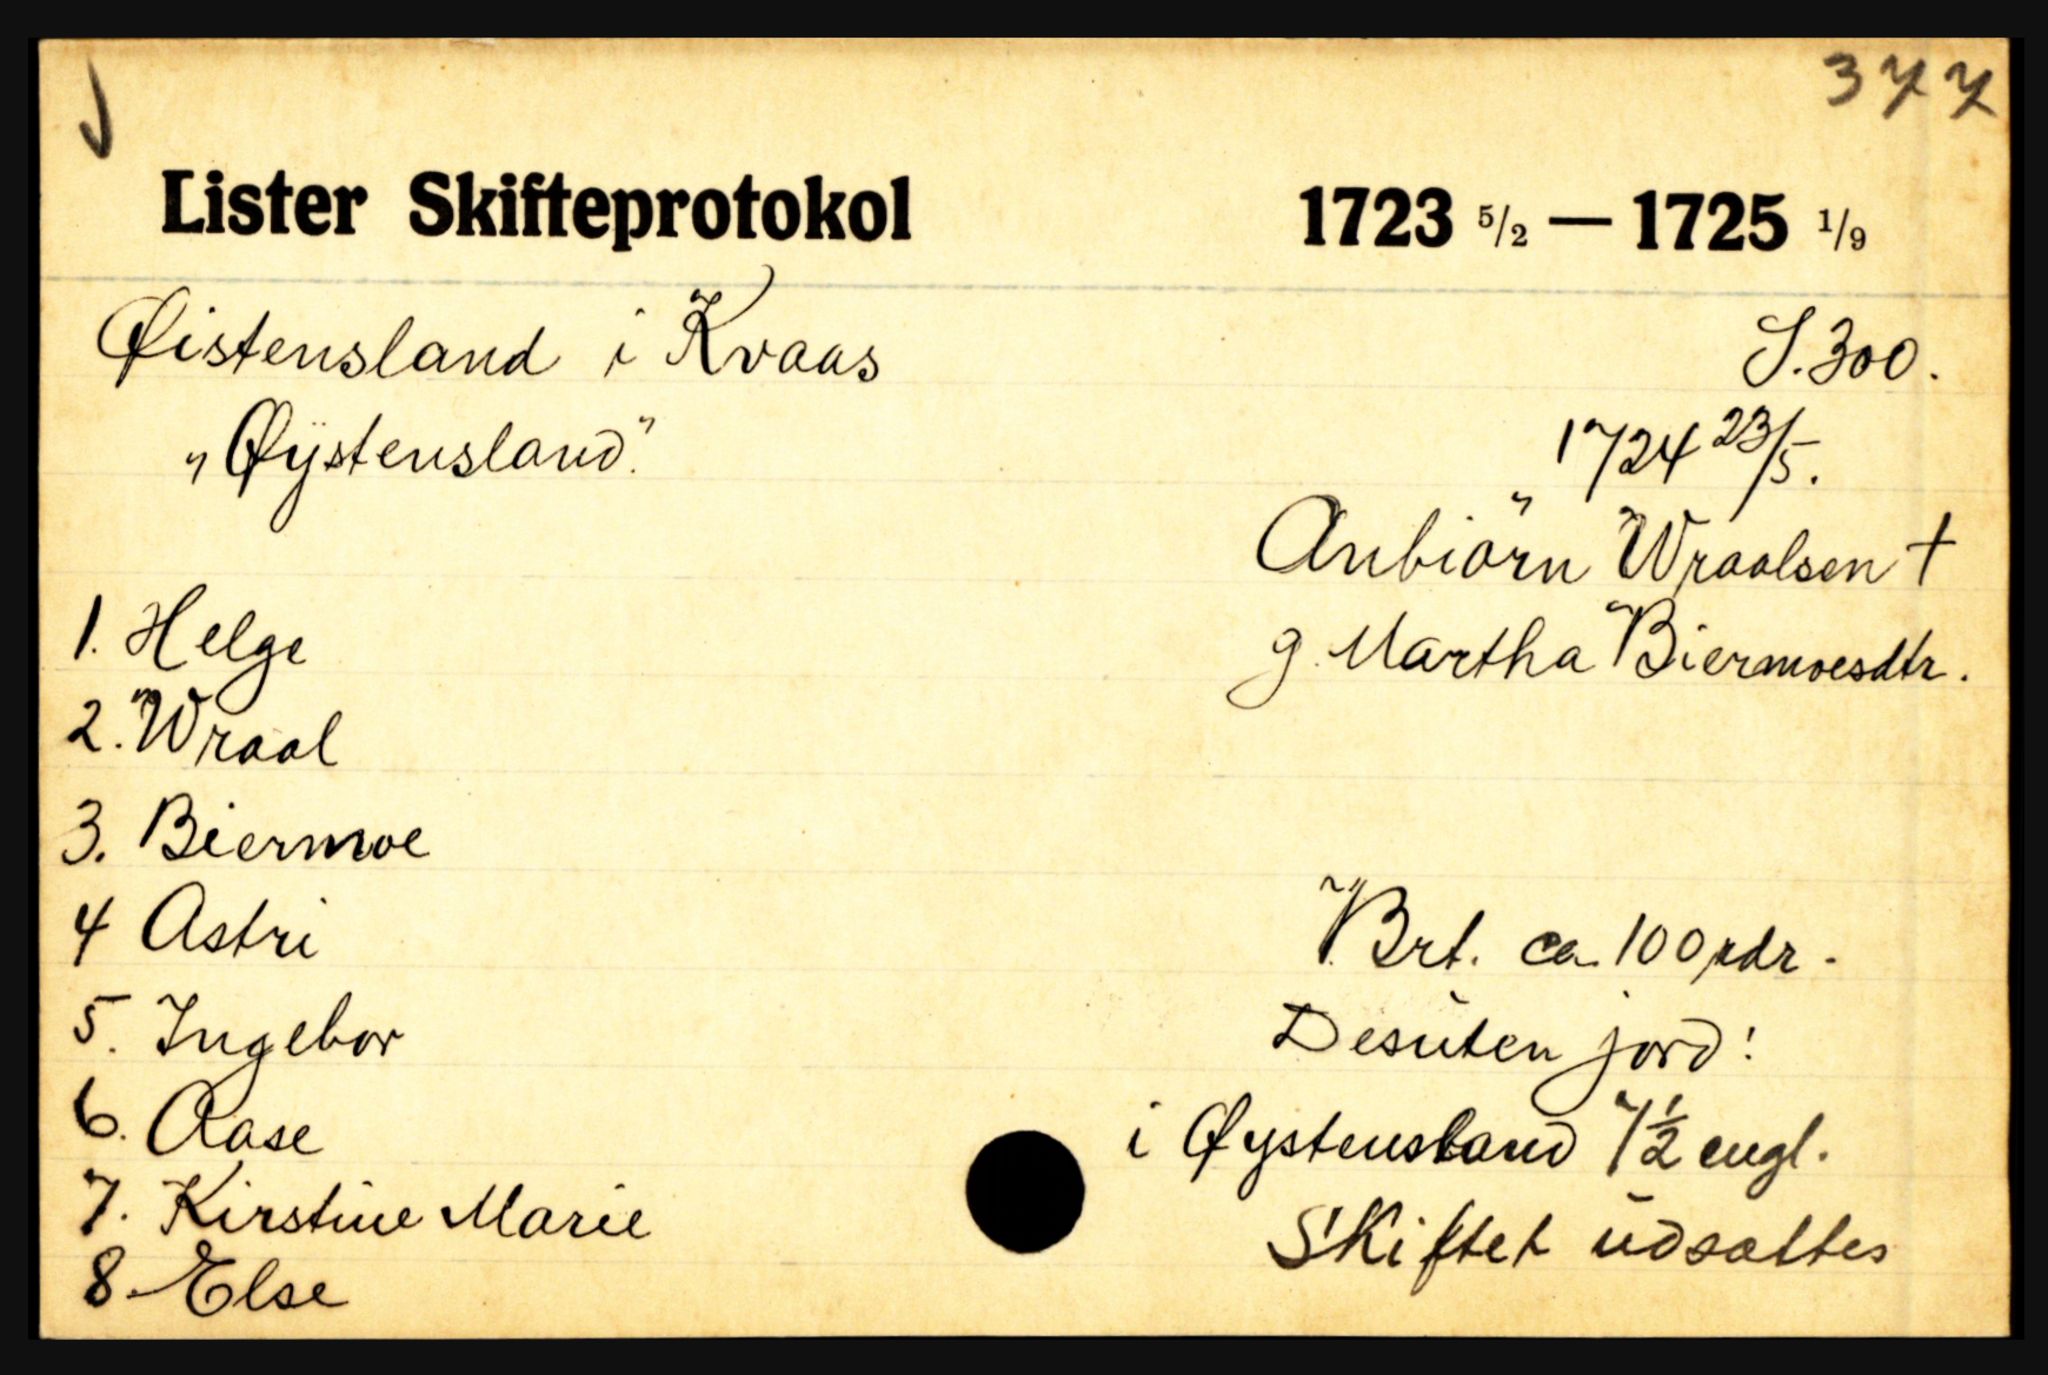 377
Lister Skifteprotokol 1723 5/2 — 1725 1/9
Øistensland i Kvaas S. 300.
„Øÿstensland."
1724 23/5.
Anbiørn Wraalsen †
g. Martha Biermoesdtr.
1. Helge
2. Wraal
3. Biermoe
4 Astri
5. Ingebor
6. Aase
7. Kirstine Marie
8. Else
Brt. ca. 100 rdr.
Desuten jord:
i Øystensland 7½ engl.
Skiftet udsættes